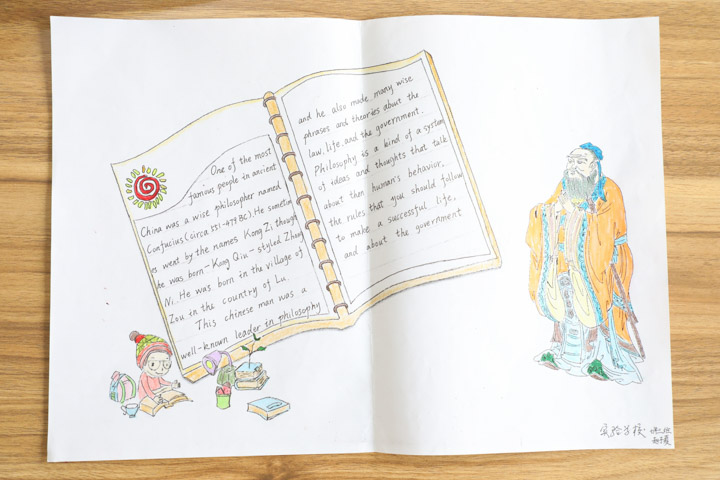 One of the most
famous people in ancient
China was a wise philosopher named
Confucius (circa 551-479 BC). He sometim
es went by the names Kong Zi though
he was born - Kong Qiu - styled Zhong
Ni. He was born in the village of
Zou in the country of Lu.
This chinese man was a
well-known leader in philosophy
and he also made many wise
phrases and theories about the
law, life, and the government.
Philosophy is a kind of a system
of ideas and thoughts that talk
about then human's behavior,
the rules that you should follow
to make a successful life,
and about the government
实验学校